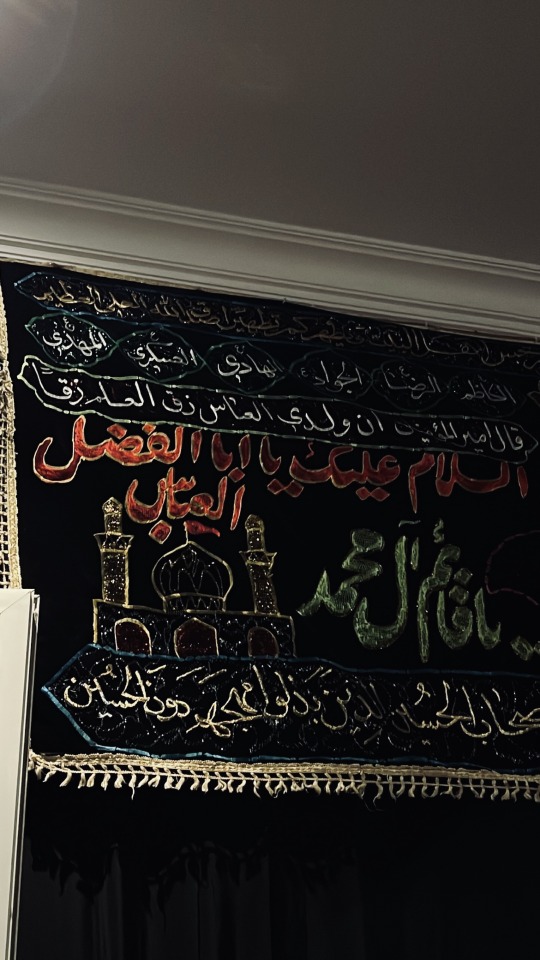 الرجس اهل البيت ويطهركم تطهيرا صدق الله العلي العظيم
الكاظم الرضا الجواد الهادي العسكري المهدي
قال امير المؤمنين ان ولدي العباس زق العلم زقا
السلام عليك يا ابا الفضل
العباس
يا قائم آل محمد
اصحاب الحسين الذين بذلوا مهجهم دون الحسين